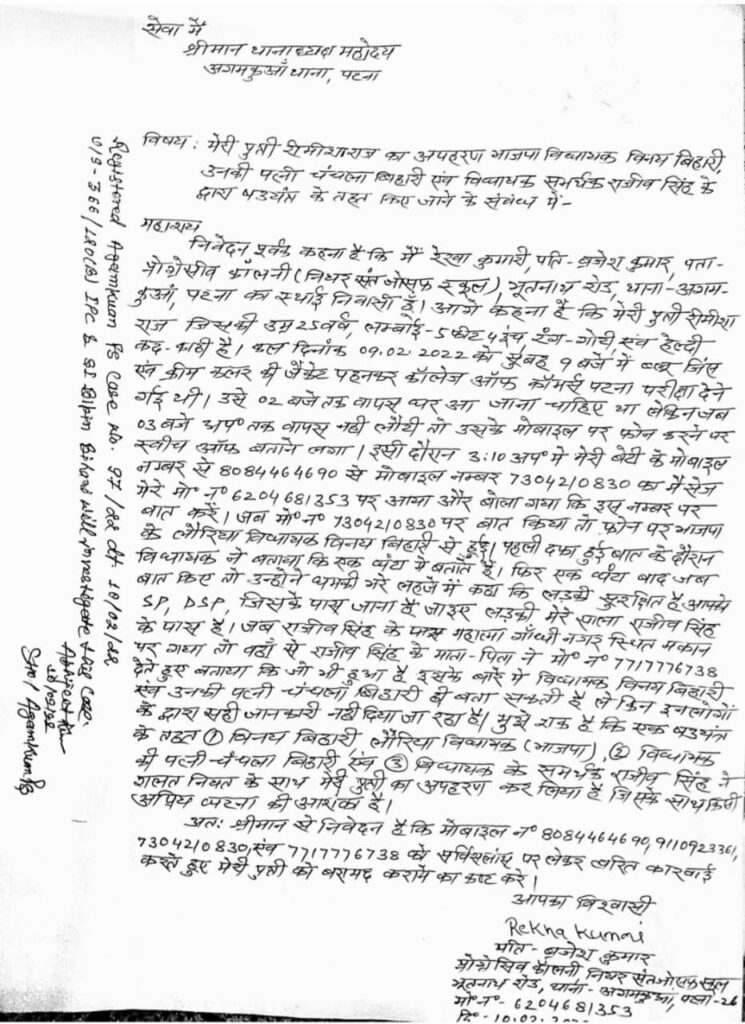 सेवा में
श्रीमान थानाध्यक्ष महोदय
अगमकुआँ थाना, पटना
विषय: मेरी पुत्री रीमीशा राज का अपहरण भाजपा विधायक विनय बिहारी,
उनकी पत्नी चंचला बिहारी एंव विधायक समर्थक राजीव सिंह के
द्वारा षडयंत्र के तहत किए जाने के संबंध में-
महाशय
निवेदन पूर्वक कहना है कि मैं रेखा कुमारी, पति-ब्रजेश कुमार, पता-
प्रोग्रेसीव कॉलनी (नियर संत जोसफ स्कूल), भूतनाथ रोड, थाना-अगम-
कुआं, पटना का स्थाई निवासी हूँ। आगे कहना है कि मेरी पुत्री रीमीशा
राज जिसकी उम्र 25 वर्ष, लम्बोई-5 फीट 4 इंच, रंग-गोरी एंव हेल्दी
कद-काठी है। कल दिनांक 09.02.2022 को सुबह 9 बजे में ब्लू जिंस
एंव क्रीम कलर की जैकेट पहनकर कॉलेज ऑफ कॉमर्स पटना परीक्षा देने
गई थी। उसे 02 बजे तक वापस घर आ जाना चाहिए था लेकिन जब
03 बजे अप० तक वापस नही लौटी तो उसके मोबाइल पर फोन करने पर
स्वीच ऑफ बताने लगा। इसी दौरान 3:10 अप० में मेरी बेटी के मोबाइल
नम्बर से 8084464690 से मोबाइल नम्बर 7304210830 का मैसेज
मेरे मो० न० 6204681353 पर आया और बोला गया कि इस नम्बर पर
बात करें। जब मो० न० 7304210830 पर बात किया तो फोन पर भाजपा
के लौरिया विधायक विनय बिहारी से हुई। पहली दफा हुई बात के दौरान
विधायक ने बताया कि एक घंटा में बताते है। फिर एक घंटा बाद जब
बात किए तो उन्होने धमकी भरे लहजे में कहा कि लड़की सुरक्षित है आपको
SP, DSP, जिसके पास जाना है जाइए लड़की मेरे साला राजीव सिंह
के पास है। जब राजीव सिंह के पास महात्मा गाँधी नगर स्थित मकान
पर गया तो वहाँ से राजीव सिंह के माता-पिता ने मो० न० 7717776738
देते हुए बताया कि जो भी हुआ है इसके बारे में विधायक विनय बिहारी
एंव उनकी पत्नी चंचला बिहारी ही बता सकती है लेकिन इनलोगों
के द्वारा सही जानकारी नही दिया जा रहा है। मुझे शक है कि एक षडयंत्र
के तहत ① विनय बिहारी लौरिया विधायक (भाजपा), ② विधायक
की पत्नी-चंचला बिहारी एंव ③ विधायक के समर्थक राजीव सिंह ने
गलत नियत के साथ मेरी पुत्री का अपहरण कर लिया है जिसके साथ किसी
अप्रिय घटना की आशंका है।
अतः श्रीमान से निवेदन है कि मोबाइल न० 8084464690, 9110923361,
7304210830 एंव 7717776738 को सर्विसलांस पर लेकर त्वरित कारवाई
करते हुए मेरी पुत्री को बरामद कराने का कष्ट करे।
आपका विश्वासी
Rekha Kumari
पति-ब्रजेश कुमार
प्रोग्रेसिव कॉलनी नियर संत जोसफ स्कूल
भूतनाथ रोड, थाना-अगमकुआं, पटना-26
मो० न०- 6204681353
दि०-10.02.
Registered Agamkuan PS Case No. 97/22 dt 10/02/22
U/S-366/120(B) IPC & SI Bipin Bihari will investigate this case.
10/02/22
SHO Agamkuan PS